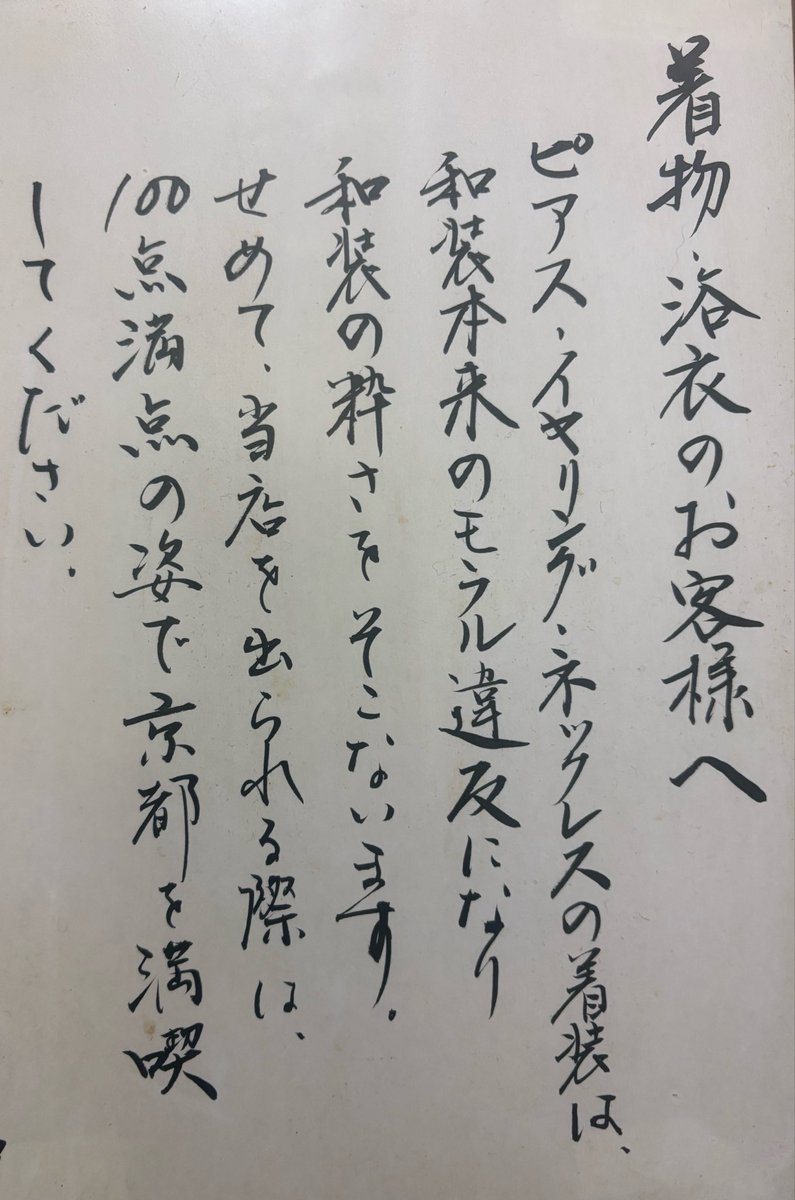 着物、浴衣のお客様へ
ピアス、イヤリング、ネックレスの着装は、
和装本来のモラル違反になり
和装の粋さをそこないます。
せめて、当店を出られる際は、
100点満点の姿で京都を満喫
してください。